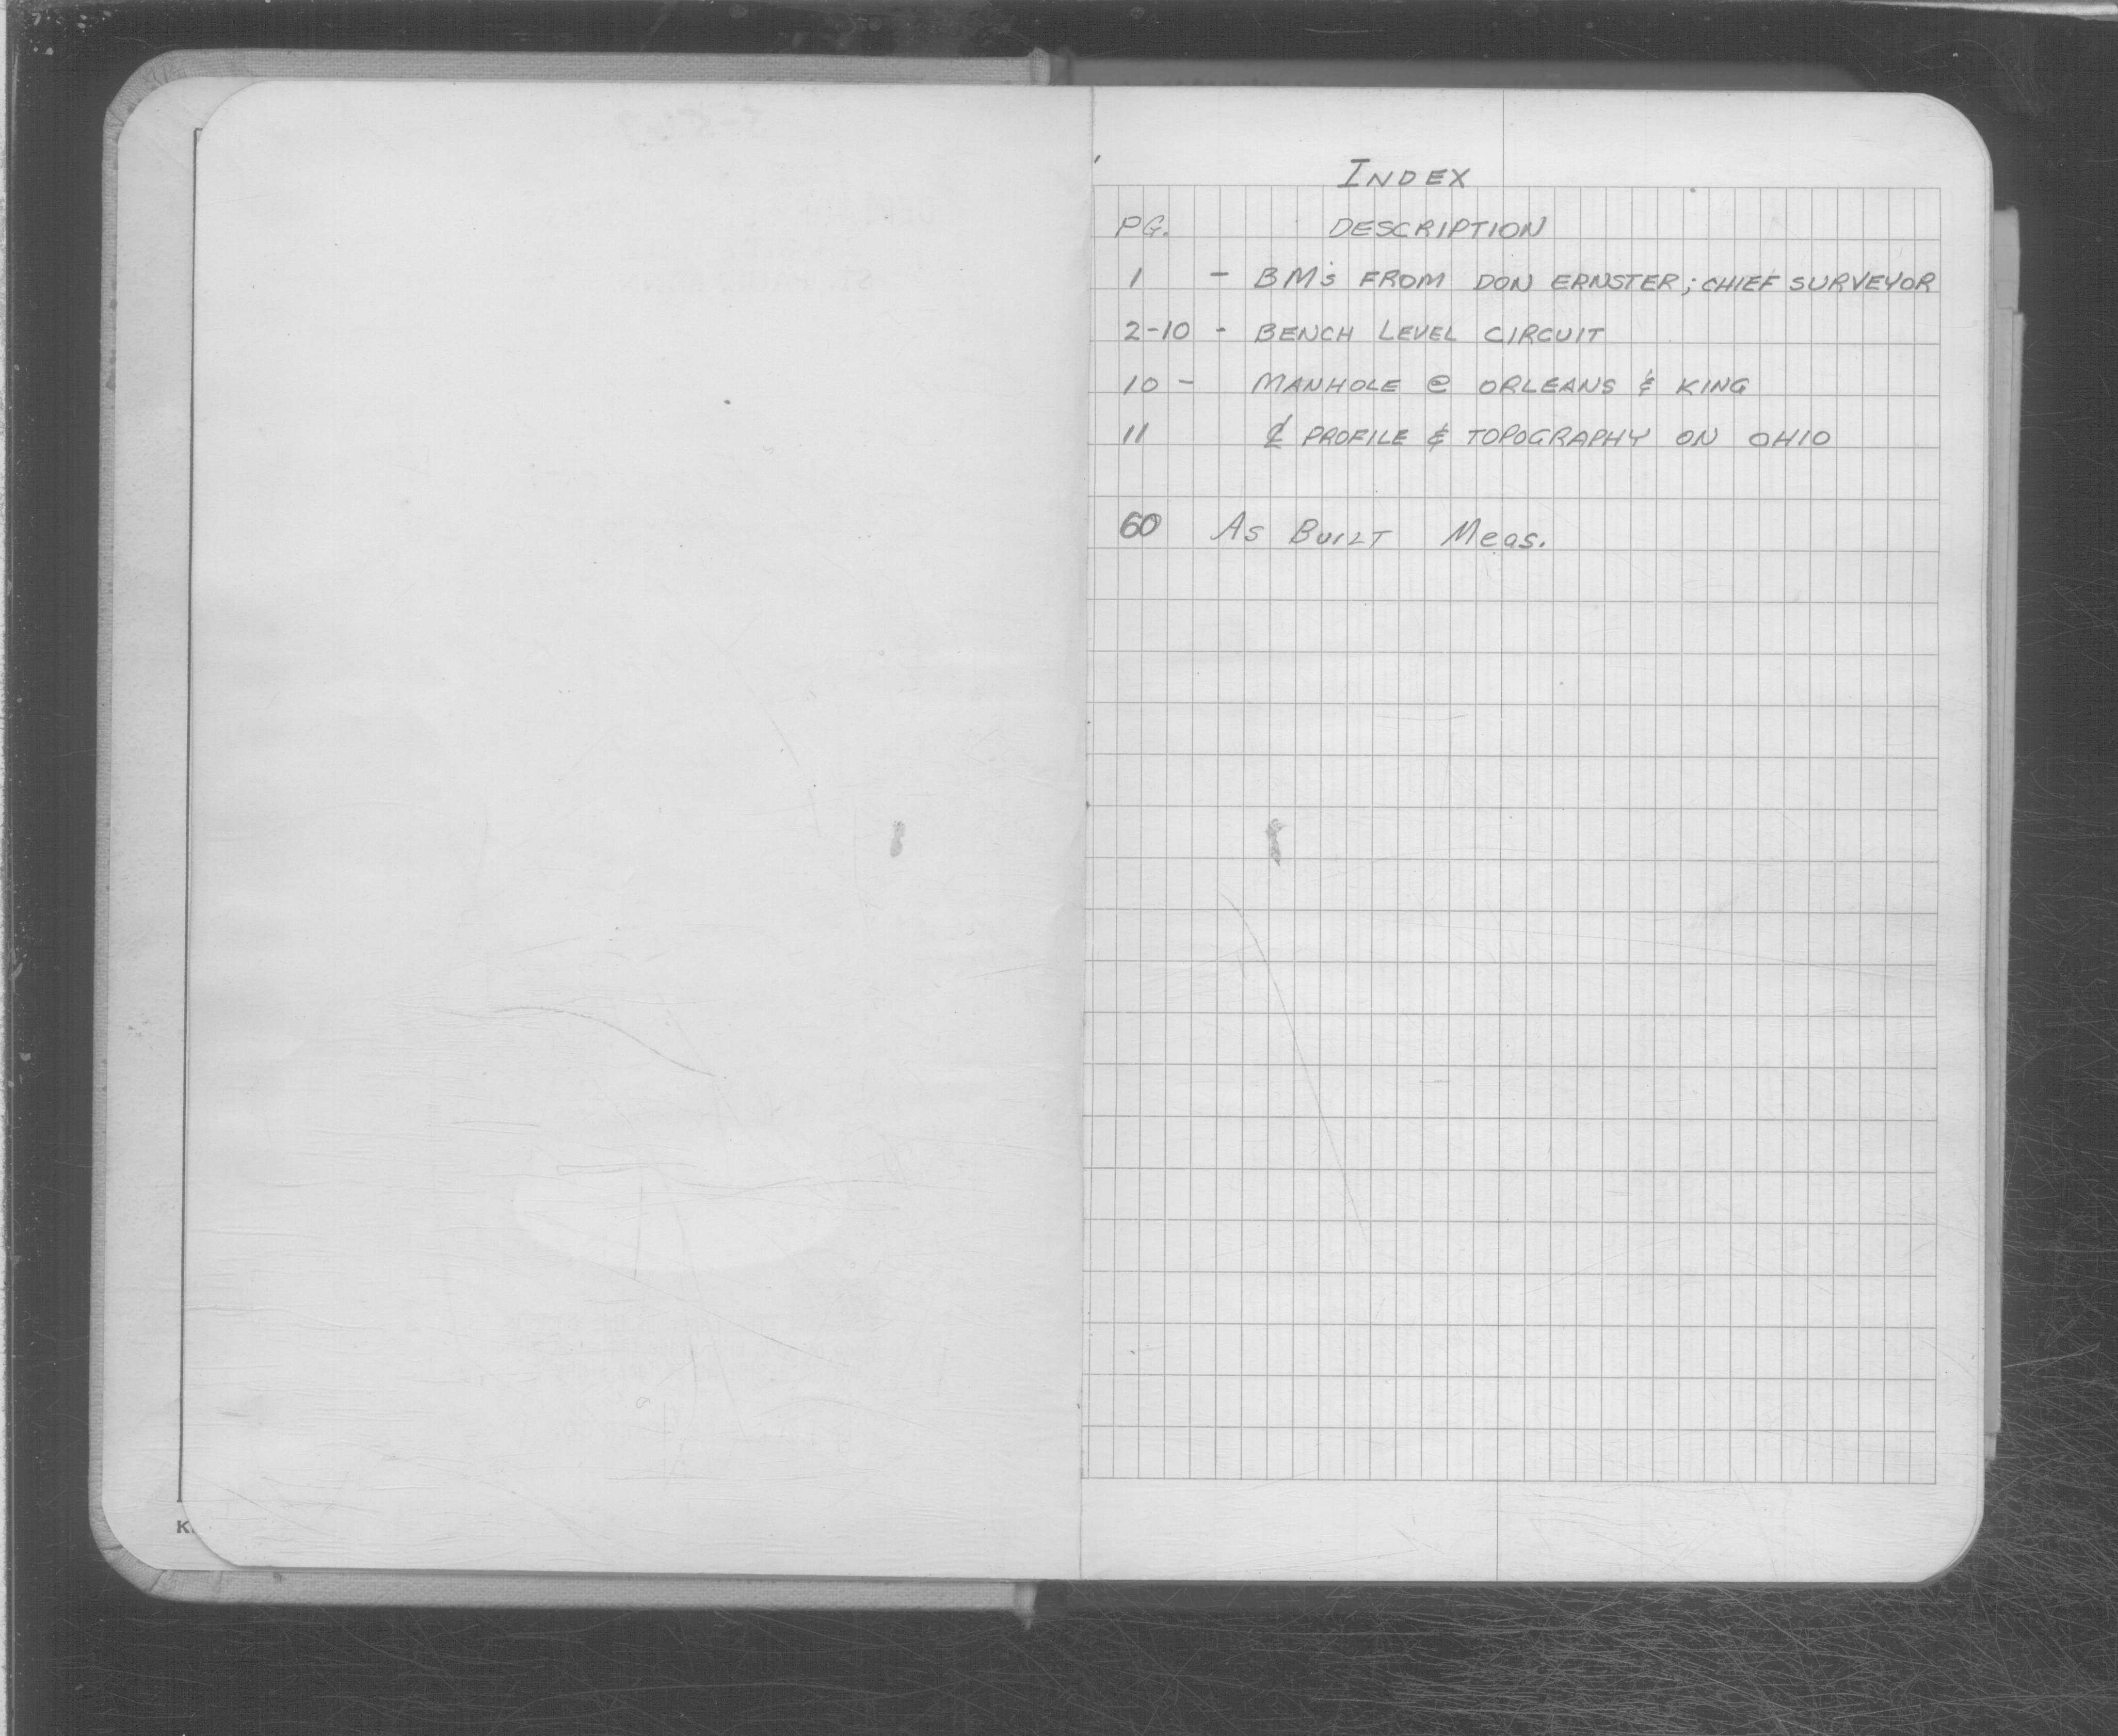 INDEX
PG. DESCRIPTION
1 - BM's FROM DON ERNSTER; CHIEF SURVEYOR
2-10 - BENCH LEVEL CIRCUIT
10 - MANHOLE @ ORLEANS & KING
11 ℄ PROFILE & TOPOGRAPHY ON OHIO
60 As BUILT Meas.
K